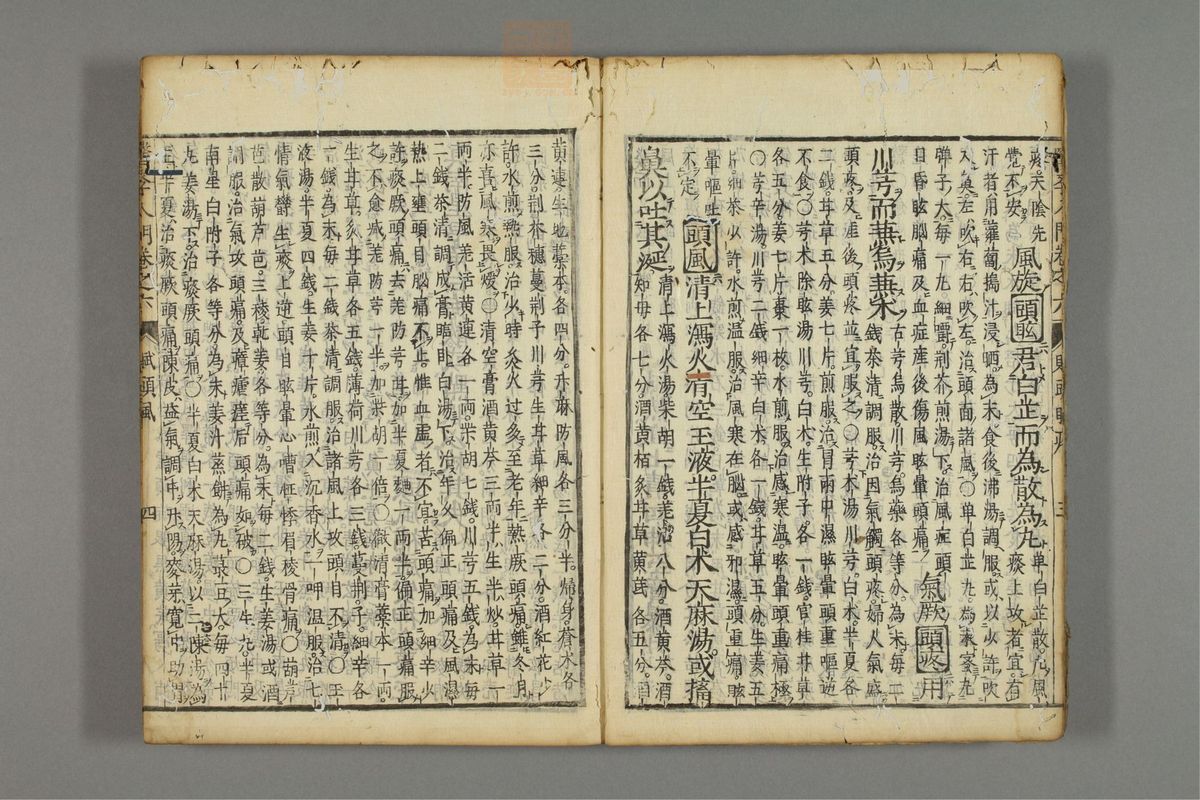 覺不安
風旋頭眩君白芷而為散為丸
單白芷散
痰上攻者宜
汗者用蘿蔔搗汁浸晒為末食後沸湯調服或以少許吹
入鼻左吹右右吹左治頭面諸風〇單白芷丸為末蜜丸
彈子大每一丸細嚼荊芥煎湯下治風症頭
目昏眩腦痛及血症產後傷風眩暈頭痛
氣厥頭疼用
川芎而兼烏兼柴
古芎烏散川芎烏藥各等分為末每二
錢茶清調服治因氣觸頭疼婦人氣盛
頭疼及產後頭疼並宜服之〇芎朮湯川芎白朮半夏各
二錢甘草五分姜七片煎服治冒雨中濕眩暈頭重嘔逆
不食〇芎朮除眩湯川芎白朮生附子各一錢官桂甘草
各五分姜七片棗一枚水煎服治感寒濕眩暈頭重痛極
〇芎辛湯川芎二錢細辛白朮各一錢甘草五分生姜五
片細茶少許水煎溫服治風寒在腦或感邪濕頭重痛眩
暈嘔吐
不定
頭風清上瀉火清空玉液半夏白朮天麻湯或搐
鼻以吐其涎
清上瀉火湯柴胡一錢羌活八分酒黃芩酒
知母各七分酒黃栢炙甘草黃芪各五分
黃連生地藁本各四分升麻防風各三分半歸身蒼朮各
三分荊芥穗蔓荊子川芎生甘草細辛各二分酒紅花少
許水煎熱服治少時灸火过多至老年熱厥頭痛雖冬月
亦喜風寒畏煖〇清空膏酒黃芩三兩半生半炒甘草一
兩半防風羌活黃連各一兩柴胡七錢川芎五錢為末每
二錢茶清調成膏臨臥白湯下治年久偏正頭痛及風濕
熱上壅頭目腦痛不止惟血虛者不宜苦頭痛加細辛少
許痰厥頭痛去羌防芎甘加半夏麯一兩半偏正頭痛服
之不愈減羌防芎一半加柴胡一倍〇微清膏藁本一兩
生甘草炙甘草各五錢薄荷川芎各三錢蔓荊子細辛各
一錢為末每二錢茶清調服治諸風上攻頭目不清〇玉
液湯半夏四錢生姜十片水煎入沉香水一呷溫服治七
情氣鬱生痰上逆頭目眩暈心嘈怔悸眉稜骨痛〇葫芦
芭散葫芦芭三稜乾姜各等分為末每二錢生姜湯或酒
調服治氣攻頭痛及瘴瘧瘥后頭痛如破〇三生丸半夏
南星白附子各等分為末姜汁蒸餅為丸菉豆大每四十
丸姜湯下治痰厥頭痛〇半夏白朮天麻湯以二陳湯為
主半夏治痰厥頭痛陳皮益氣調中升陽麥芽寬中助胃
賦頭風
四